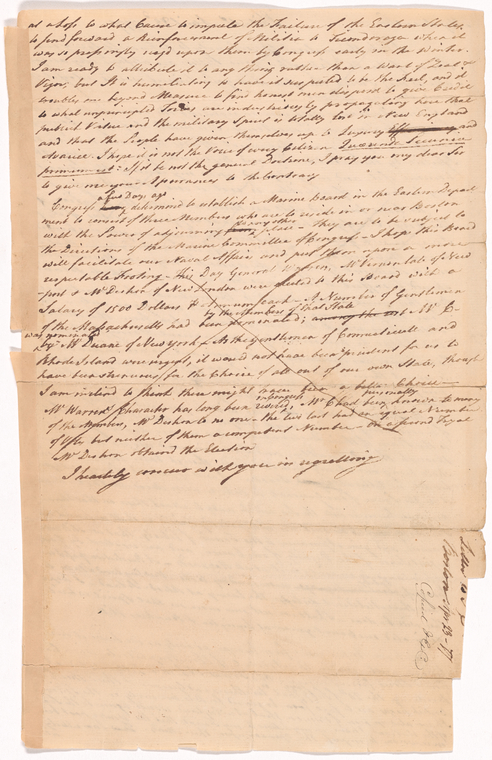 at a loss to what Cause to impute the Failure of the Eastern States
to send forward a Reinforcement of Militia to Ticonderoga when it
was so pressingly urgd upon them by Congress early in the Winter.
I am ready to attribute it to any thing rather than a Want of Zeal &
Vigor; but It is humiliating to have it suspected to be the Fact, and it
troubles me beyond Measure to find honest men disposd to give Credit
to what unprincipled Tories are industriously propagating here that
publick Virtue and the military Spirit is totally lost in New England
and that the People have given themselves up to Luxury and
Avarice. I hope it is not the Voice of every Citizen Quærenda Pecunia
primum est. If it be not the general Doctrine, I pray you my dear Sir
to give me your Assurances to the Contrary
a few Days ago
Congress determind to establish a Marine Board in the Eastern Depart
ment to consist of three Members who are to reside in or near Boston
with the Power of adjourning to any other place - they are to be subject to
the Direction of the Marine Committee of Congress - I hope this Board
will facilitate our Naval Affairs and put them upon a more
respectable Footing - This Day General Warren, Mr Vernon late of New
port & Mr Deshon of New London were elected to this Board with a
Salary of 1500 Dollars p Annum each - A Number of Gentlemen
by the Members of that State
of the Massachusetts had been nominated; among the rest Mr C-
was nominated
by Mr Duane of New York & As the Gentlemen of Connecticutt and
Rhode Island were urgent, it would not have been prudent for us to
have been strenuous for the Choice of all out of our own State, though
I am inclind to think there might have been a better Choice -
Mr Warrens Character has long been in Congress, Mr C had been personally known to many
of the Members, Mr Deshon to no one - the two last had an equal Number
of Votes but neither of them a competent Number - On a second Tryal
Mr Deshon obtaind the Election
I heartily concur with you in regretting
Letter to
Boston Apr 23 - 77